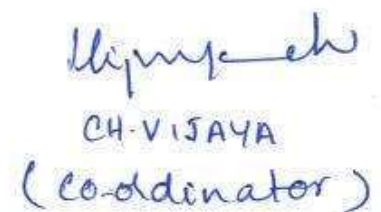 CH.VIJAYA
(co-oddinator)